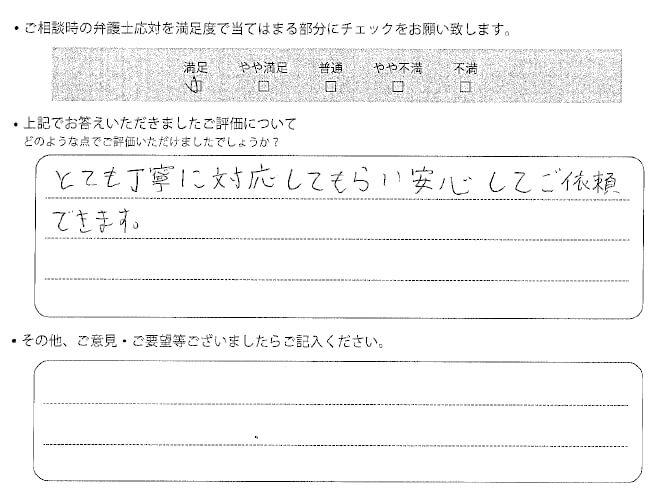 ・ご相談時の弁護士応対を満足度で当てはまる部分にチェックをお願い致します。
満足 やや満足 普通 やや不満 不満
☑ □ □ □ □
・上記でお答えいただきましたご評価について
どのような点でご評価いただけましたでしょうか？
とても丁寧に対応してもらい安心してご依頼
できます。
・その他、ご意見・ご要望等ございましたらご記入ください。